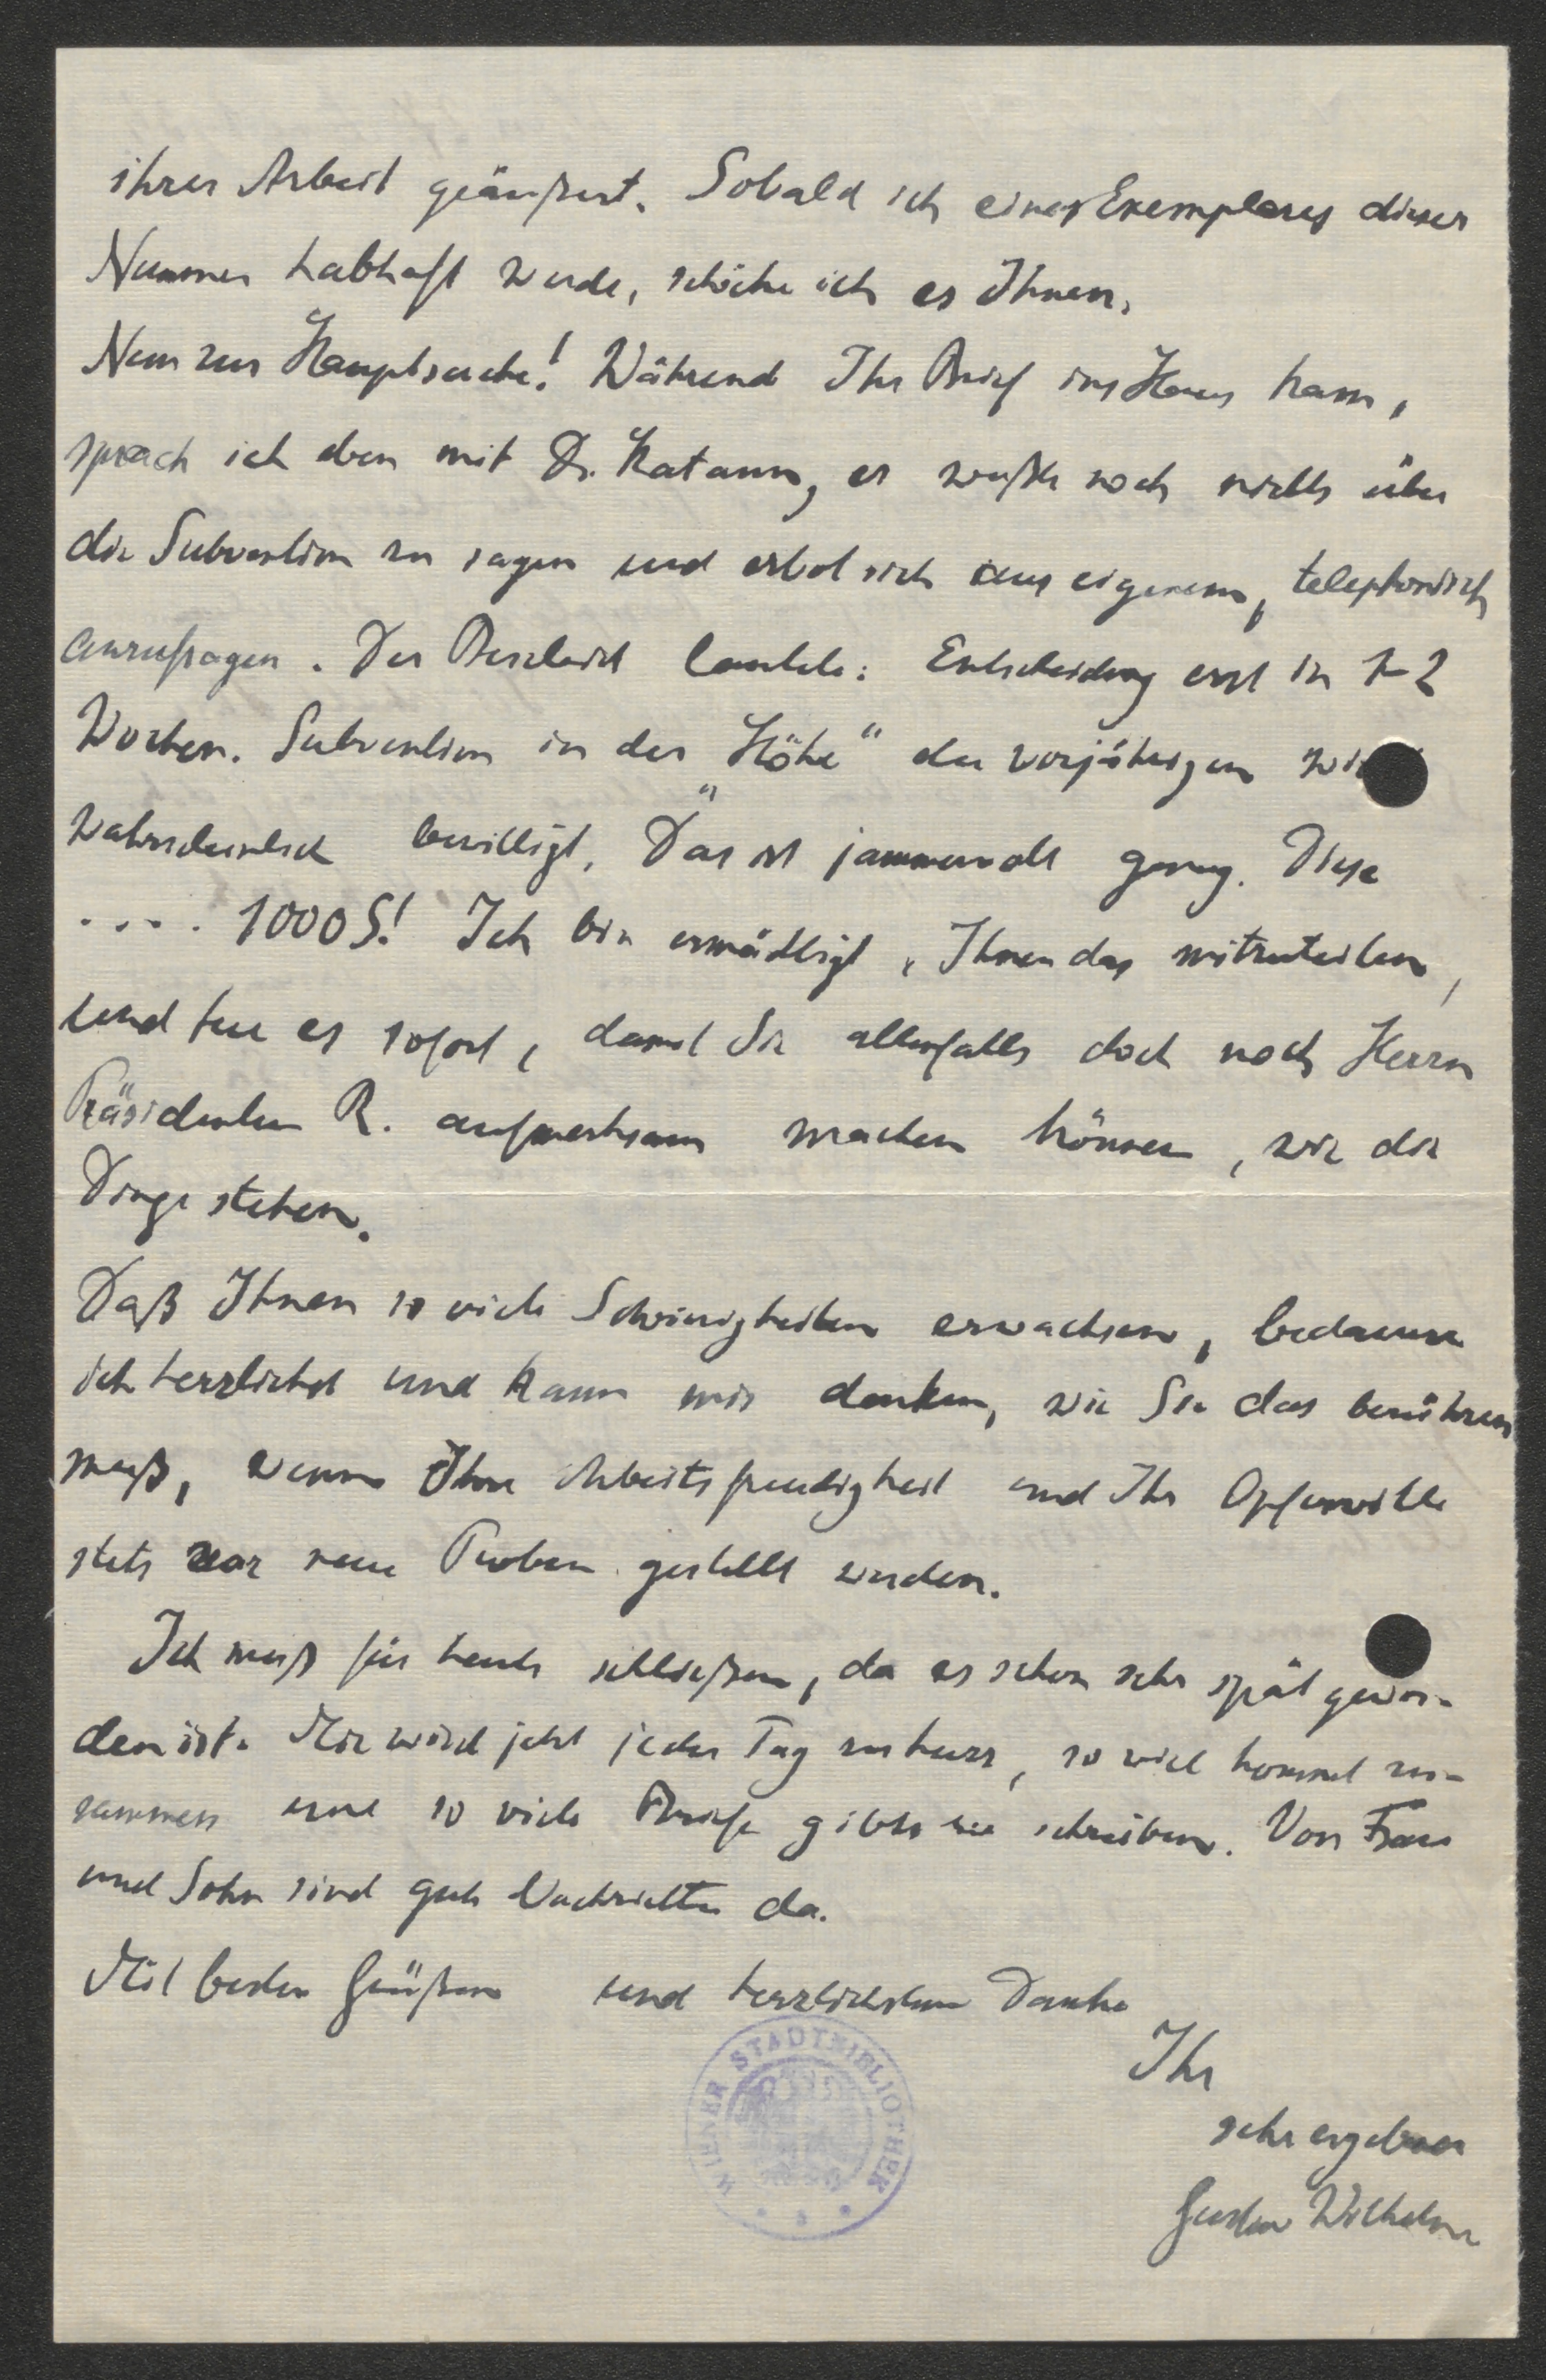 ihrer Arbeit geäußert. Sobald ich eines Exemplares dieser
Nummer habhaft werde, schicke ich es Ihnen.
Nun zur Hauptsache! Während Ihr Brief ins Haus kam,
sprach ich eben mit Dr. Katann, er wußte noch nichts über
die Subvention zu sagen und erbot sich aus eigenem, telephonisch
anzufragen. Der Bescheid lautete: Entscheidung erst in 1-2
Wochen. Subvention in der „Höhe“ der vorjährigen wird
wahrscheinlich bewilligt. Das ist jammervoll genug. Diese
.... 1000 S! Ich bin ermächtigt, Ihnen das mitzuteilen,
und tue es sofort, damit Sie allenfalls doch noch Herrn
Präsidenten R. aufmerksam machen können, wie die
Dinge stehen.
Daß Ihnen so viele Schwierigkeiten erwachsen, bedauere
ich herzlichst und kann mir denken, wie Sie das berühren
muß, wenn Ihre Arbeitsfreudigkeit und Ihr Opferwille
stets vor neue Proben gestellt werden.
Ich muß für heute schließen, da es schon sehr spät gewor-
den ist. Mir wird jetzt jeder Tag zu kurz, so viel kommt zu-
sammen und so viele Briefe gibts zu schreiben. Von Frau
und Sohn sind gute Nachrichten da.
Mit besten Grüßen und herzlichstem Danke
Ihr
sehr ergebener
Gustav Wilhelm
WIENER STADTBIBLIOTHEK